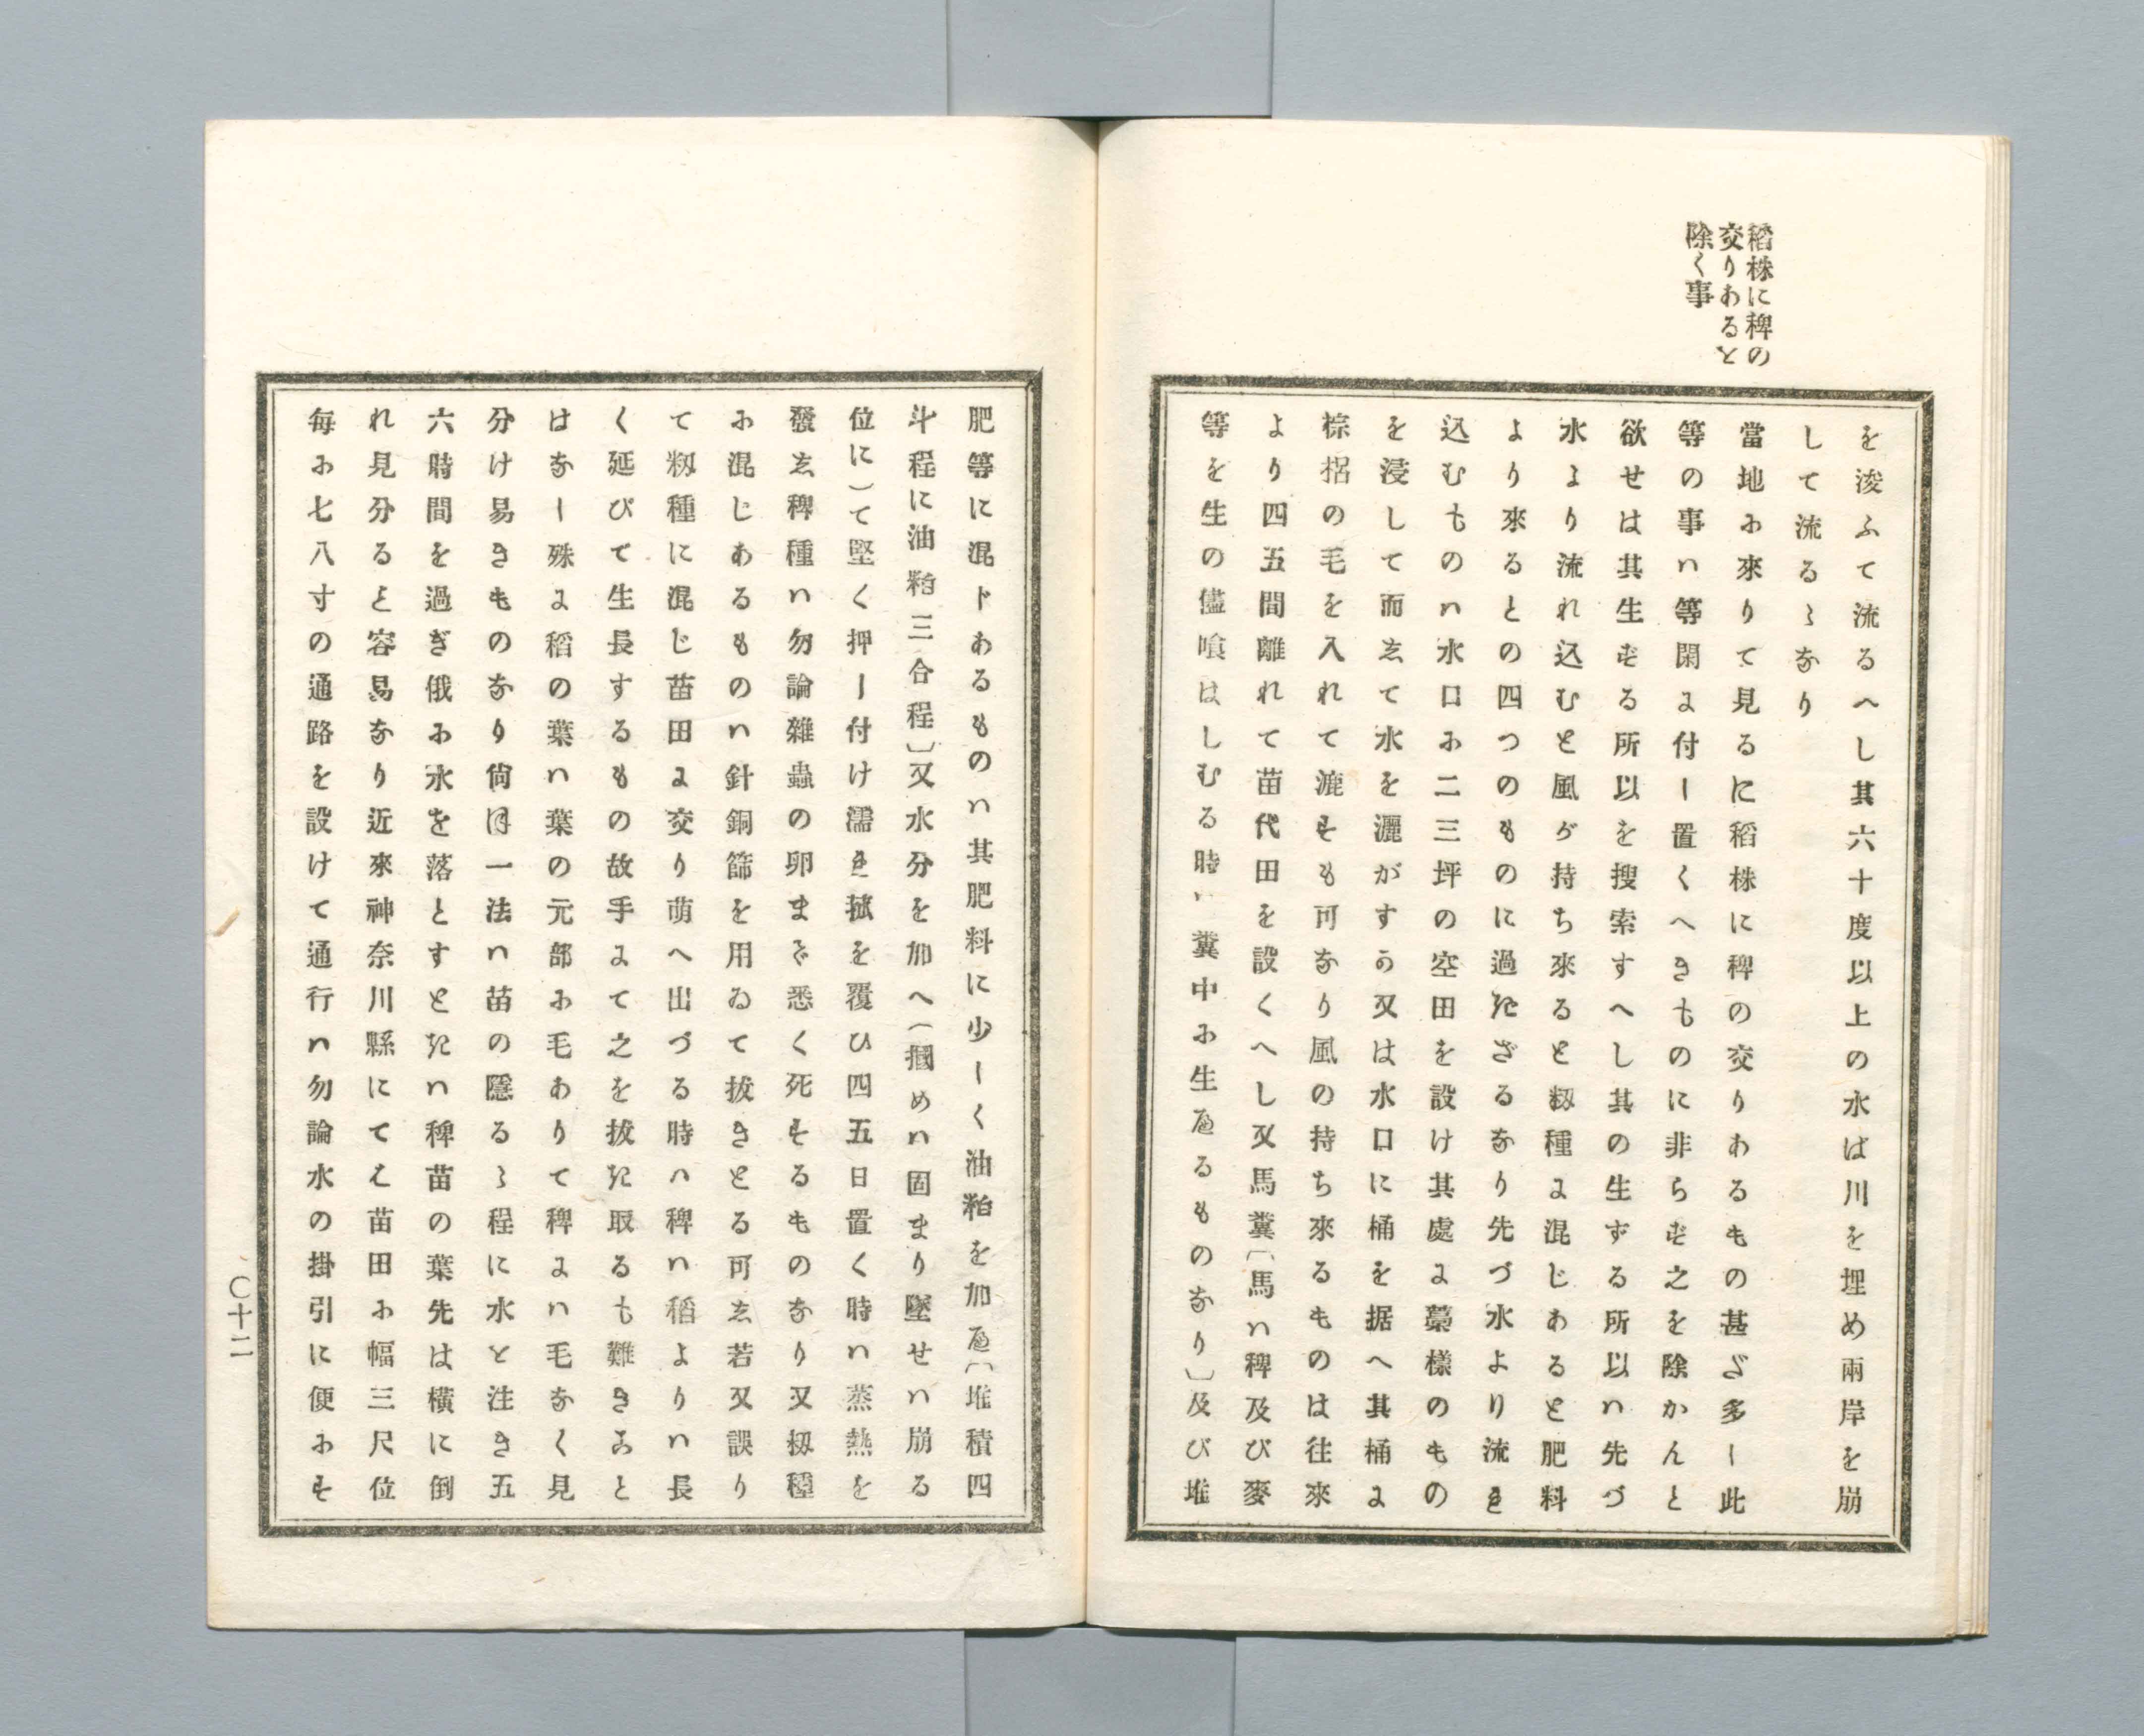 稻株に稗の
交りあると
除く事
を浚ふて流るへし其六十度以上の水ば川を埋め兩岸を崩
して流るゝなり
當地お來りて見るに稻株に稗の交りわるもの甚ざ多し此
等の事ハ等閑よ付し置くへきものに非らず之を除かんと
欲せは其生ずる所以を搜索すへし其の生ずる所以ハ先づ
水より流れ込むと風が持ち來ると籾種よ混じあると肥料
より來るとの四つのものに過ぎざるなり先づ水より流き
込むものハ水口お二三坪の空田を設け其處よ藁樣のもの
を浸して而ゑて水を灑がすう又は水口に桶を据へ其桶よ
棕梠の毛を入れて漉すも可なり風の持ち來るものは往來
より四五間離れて苗代田を設くへし又馬糞〔馬ハ稗及び麥
等を生の儘喰はしむる時ハ糞中お生ゆるものなり〕及び堆
肥等に混ドあるものハ其肥料に少しく油粕を加ゆ〔堆積四
斗程に油粕三合程〕又水分を加へ(摑めハ固まり墜せハ崩る
位に)て堅く押し付け濡き菰を覆ひ四五日置く時ハ蒸熱を
發ゑ稗種ハ勿論雜蟲の卵まで悉く死するものなり又籾種
お混じあるものハ針銅篩を用ゐて拔きとる可ゑ若又誤り
て籾種に混じ苗田よ交り萌へ出づる時ハ稗ハ稻よりハ長
く延びて生長するもの故手よて之を拔き取るも難きこと
はなし殊よ稻の葉ハ葉の元部お毛ありて稗よハ毛なく見
分け易きものなり尙ほ一法ハ苗の隱るゝ程に水と注き五
六時間を過ぎ俄お水を落とすときハ稗苗の葉先は横に倒
れ見分ると容易なり近來神奈川縣にてえ苗田お幅三尺位
毎お七八寸の通路を設けて通行ハ勿論水の掛引に便おす
〇十二